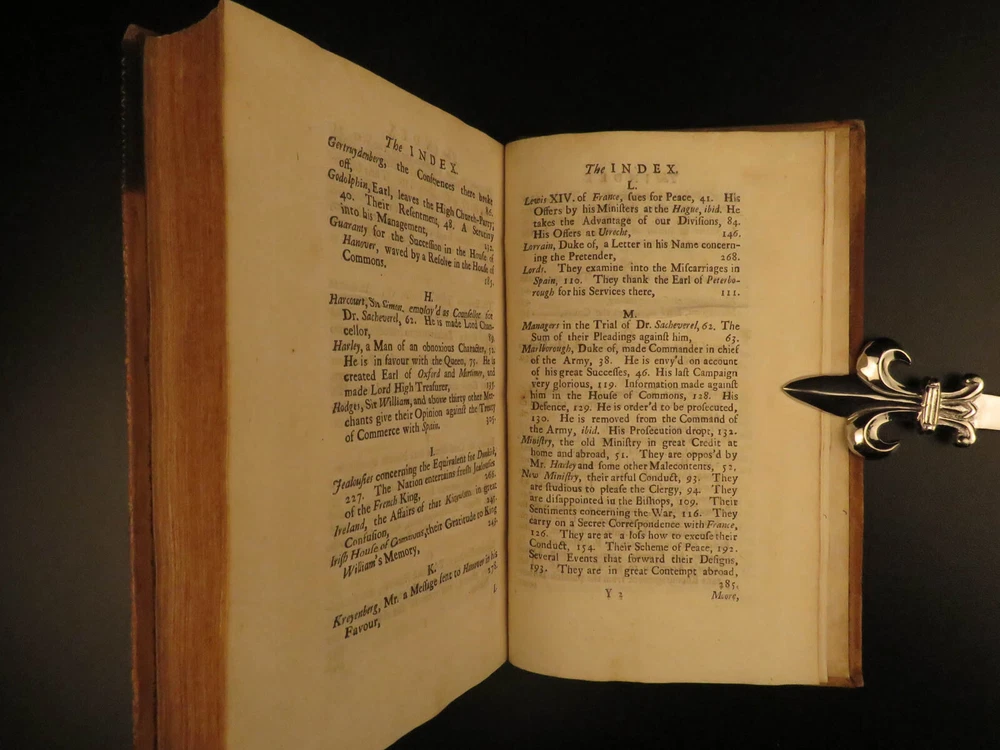 The INDEX.
Gertruydenberg, the Conferences there broke
off, 86.
Godolphin, Earl, leaves the High Church-Party,
40. Their Resentment, 48. A Scrutiny
into his Management, 132.
Guaranty for the Succession in the House of
Hanover, waved by a Resolve in the House of
Commons. 285.
H.
Harcourt, Sir Simon, employ'd as Counsellor for
Dr. Sacheverel, 62. He is made Lord Chan-
cellor, 89.
Harley, a Man of an obnoxious Character, 52.
He is in favour with the Queen, 75. He is
created Earl of Oxford and Mortimer, and
made Lord High Treasurer,
Hodges, Sir William, and above thirty other Mer-
chants give their Opinion against the Treaty
of Commerce with Spain. 305.
I.
Jealousies concerning the Equivalent for Dunkirk,
227. The Nation entertains fresh Jealousies
of the French King, 266.
Ireland, the Affairs of that Kingdom in great
Confusion, 245.
Irish House of Commons, their Gratitude to King
William's Memory, 249.
K.
Kreyenberg, Mr. a Message sent to Hanover in his
Favour, 278.
L.
The INDEX.
L.
Lewis XIV. of France, sues for Peace, 41. His
Offers by his Ministers at the Hague, ibid. He
takes the Advantage of our Divisions, 84.
His Offers at Utrecht, 146.
Lorrain, Duke of, a Letter in his Name concern-
ing the Pretender, 268.
Lords. They examine into the Miscarriages in
Spain, 110. They thank the Earl of Peterbo-
rough for his Services there, 111.
M.
Managers in the Trial of Dr. Sacheverel, 62. The
Sum of their Pleadings against him, 63.
Marlborough, Duke of, made Commander in chief
of the Army, 38. He is envy'd on account
of his great Successes, 46. His last Campaign
very glorious, 119. Information made against
him in the House of Commons, 128. His
Defence, 129. He is order'd to be prosecuted,
130. He is removed from the Command of
the Army, ibid. His Prosecution dropt, 132.
Ministry, the old Ministry in great Credit at
home and abroad, 51. They are oppos'd by
Mr. Harley and some other Malecontents, 52.
New Ministry, their artful Conduct, 93. They
are studious to please the Clergy, 94. They
are disappointed in the Bishops, 109. Their
Sentiments concerning the War, 116. They
carry on a Secret Correspondence with France,
126. They are at a loss how to excuse their
Conduct, 154. Their Scheme of Peace, 192.
Several Events that forward their Designs,
193. They are in great Contempt abroad,
285.
Y 3 Moore,